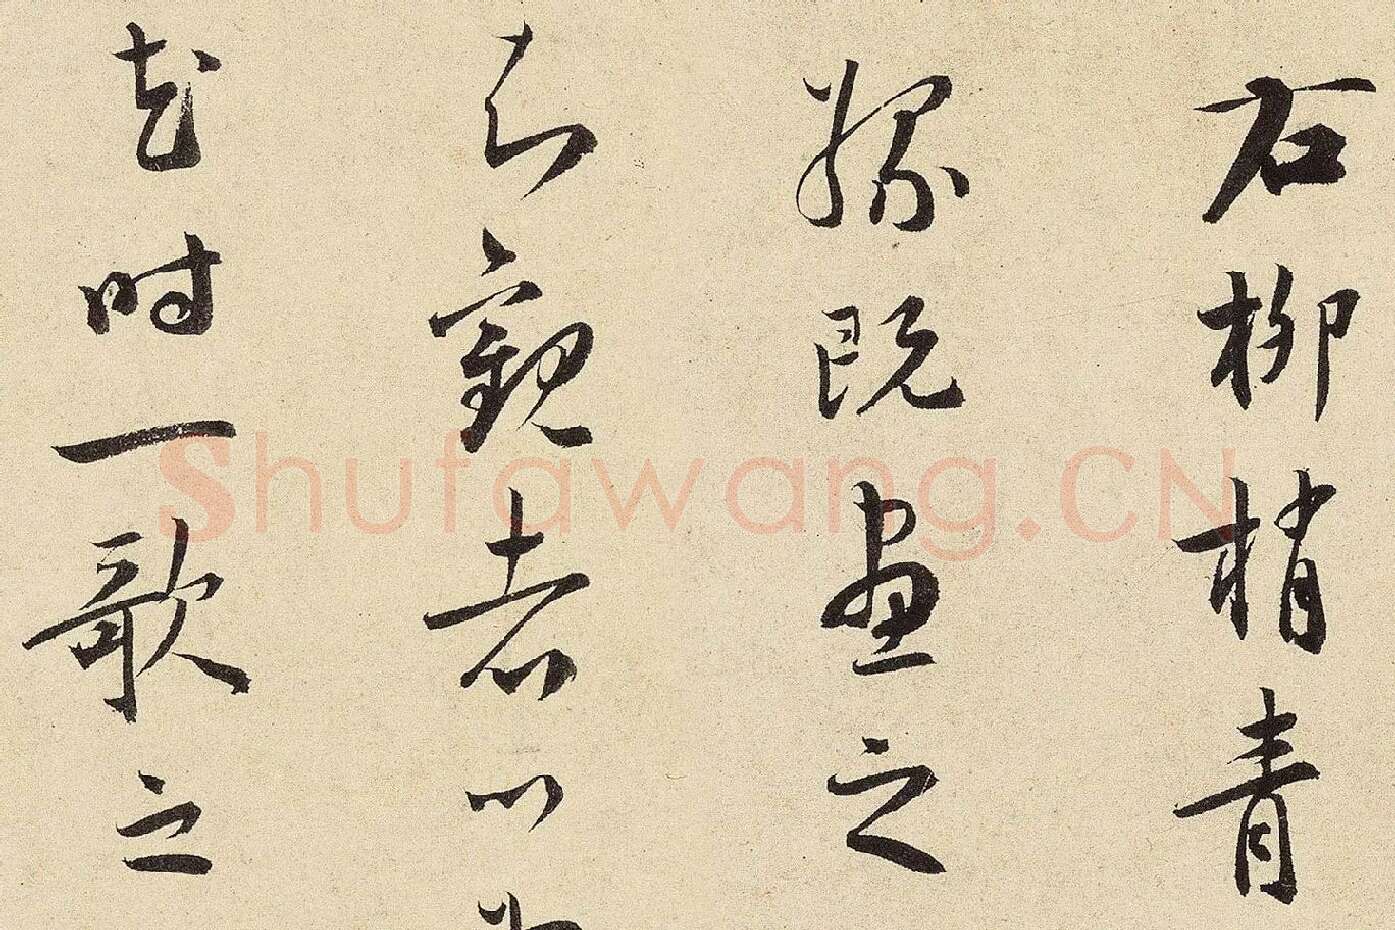 右柳梢青
既畫之
觀者以
花時一歌之
Shufawang.CN